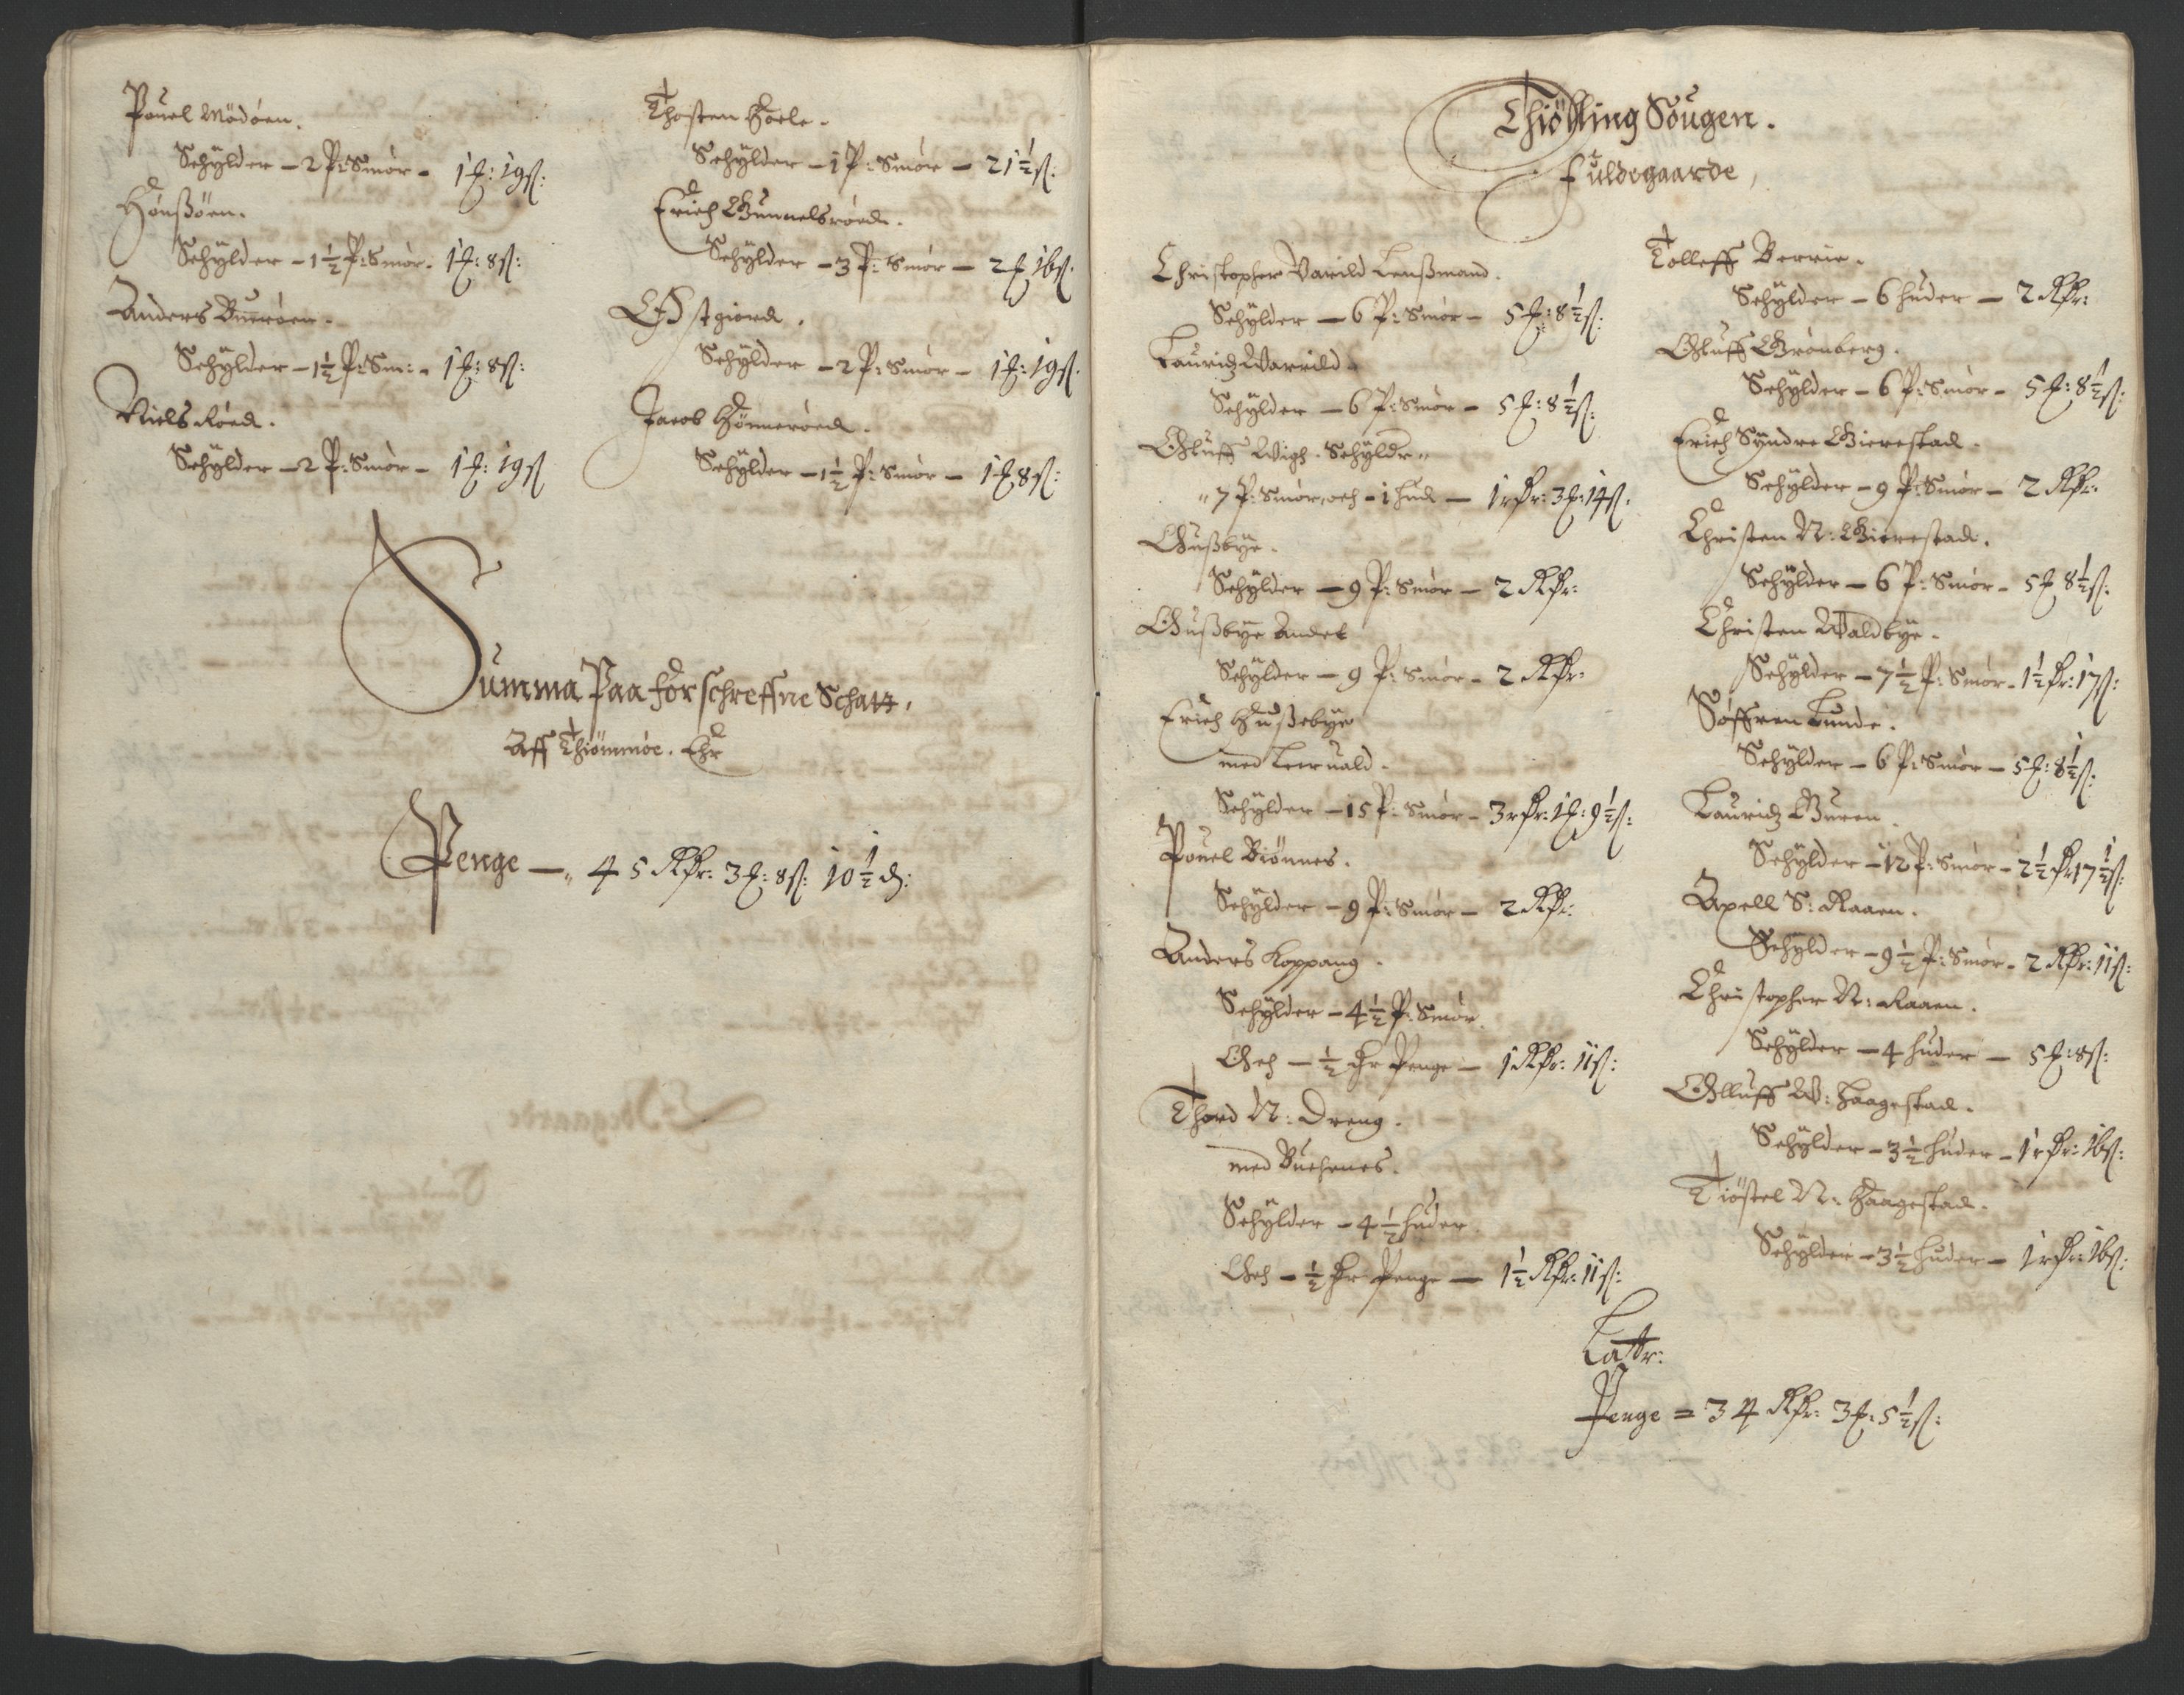 Pouel Mödöen.
Schÿlder – 2 P: Smör – 1 f: 19 ß:
Hönßöen.
Schÿlder – 1½ P: Smör. 1 f: 8 ß:
Anders Bueröen.
Schÿlder – 1½ P: Sm: – 1 f: 8 ß:
Niels Röed.
Schÿlder – 2 P: Smör – 1 f: 19 ß
Thosten Hoele.
Schÿlder – 1 P: Smör – 21½ ß:
Erich Gunnelsröed.
Schÿlder – 3 P: Smör – 2 f 16 ß.
Østgiord.
Schÿlder – 2 P: Smör – 1 f: 19 ß.
Jacob Hönneröed.
Schÿlder – 1½ P: Smör – 1 f 8 ß:
Summa Paa forschreffne Schatt,
Aff Thiömmöe. Ehr
Penge –„ 45 Rdr: 3 f: 8 ß: 10½ d:
Thiölling Sougen.
Fuldegaarde,
Christopher Varild Lenßmand.
Schÿlder – 6 P: Smör – 5 f: 8½ ß:
Lauridz Warrild.
Schÿlder – 6 P: Smör – 5 f: 8½ ß:
Oluff Wigh. Schÿldr„
„7 P: Smör, och – 1 hud – 1 rdr: 3 f: 14 ß.
Gußbÿe.
Schÿlder – 9 P: Smör – 2 Rdr:
Gußbÿe Andet
Schÿlder – 9 P: Smör – 2 Rdr:
Erich Hußebÿe
med Leeruald.
Schÿlder – 15 P: Smör – 3 rdr: 1 f: 9½ ß:
Pouel Biönnes.
Schÿlder – 9 P: Smör – 2 Rdr:
Anders Koppang.
Schÿlder – 4½ P: Smör
Och – ½ dr Penge – 1 Rdr: 11 ß:
Thord N: Dreng.
med Buchenes.
Schÿlder – 4½ huder.
Och – ½ dr Penge – 1½ Rdr: 11 ß:
Tolleff Berrie.
Schÿlder – 6 huder – 2 Rdr:
Oluff Grönberg.
Schÿlder – 6 P: Smör – 5 f: 8½ ß:
Erich Sÿndre Gierestad.
Schÿlder – 9 P: Smör – 2 Rdr:
Christen N: Gierestad.
Schÿlder – 6 P: Smör – 5 f 8½ ß:
Christen Waldbÿe.
Schÿlder – 7½ P: Smör – 1½ dr: 17 ß:
Söffren Lunde.
Schÿlder – 6 P: Smör – 5 f: 8½ ß:
Lauridz Guren.
Schÿlder – 12 P: Smör – 2½ dr 17½ ß:
Axell S: Raaen.
Schÿlder – 9½ P: Smör – 2 Rdr: 11 ß:
Christopher N: Raaen.
Schÿlder – 4 huder – 5 f: 8 ß:
Olluff W: Haagestad.
Schÿlder – 3½ huder – 1 rdr: 16 ß:
Tiöstel N: Haagestad.
Schÿlder – 3½ huder – 1 rdr: 16 ß:
Lattr:
Penge = 34 Rdr: 3 f: 5½ ß: